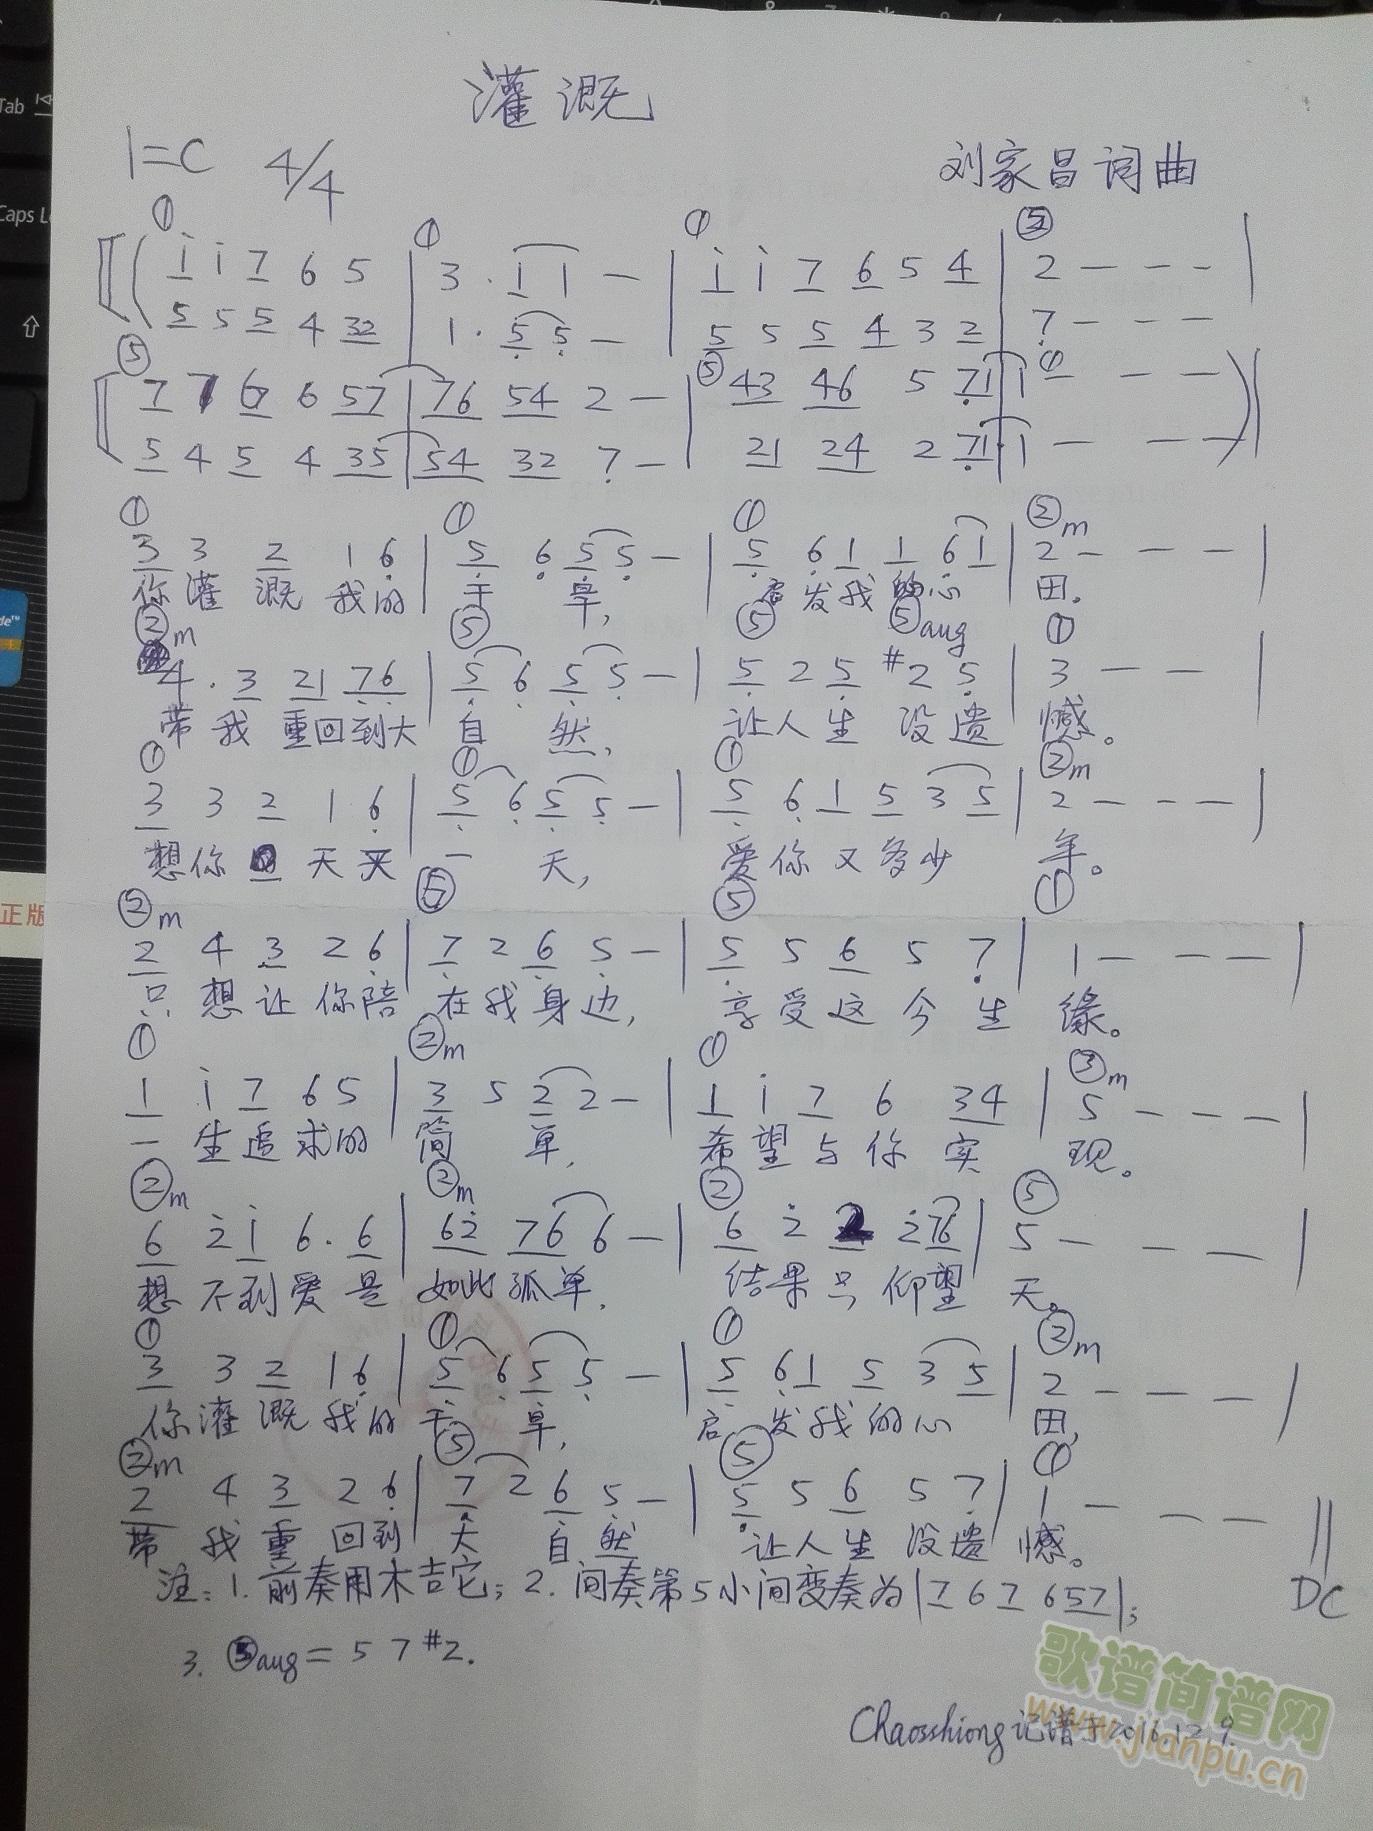 灌溉
1=C 4/4
刘家昌词曲
① ① ① ⑤
i i 7 6 5 | 3 · 1 1 — | i i 7 6 5 4 | 2 — — — |
5 5 5 4 32 | 1 · 5 5 — | 5 5 5 4 3 2 | 7 — — —
⑤ ⑤ ①
7 7 6 6 57 | 76 54 2 — | 43 46 5 71 | 1 — — — |
5 4 5 4 35 | 54 32 7 — | 21 24 2 71 | 1 — — —
① ① ① ②m
3 3 2 1 6 | 5 6 5 5 — | 5 6 1 1 6 1 | 2 — — — |
你灌溉我的干旱, 启发我的心田。
②m ⑤ ⑤ ⑤aug ①
4 · 3 21 76 | 5 6 5 5 — | 5 2 5 #2 5 | 3 — — — |
带我重回到大自然, 让人生没遗憾。
① ① ① ②m
3 3 2 1 6 | 5 6 5 5 — | 5 6 1 5 3 5 | 2 — — — |
想你天天一天, 爱你又多少年。
②m ⑤ ⑤ ①
2 4 3 2 6 | 7 2 6 5 — | 5 5 6 5 7 | 1 — — — |
只想让你陪在我身边, 享受这今生缘。
① ②m ① ③m
1 i 7 6 5 | 3 5 2 2 — | 1 i 7 6 34 | 5 — — — |
一生追求的简单, 希望与你实现。
②m ②m ② ⑤
6 2 i 6 · 6 | 62 76 6 — | 6 2 2 2 76 | 5 — — — |
想不到爱是如此孤单, 结果只仰望天。
① ① ① ②m
3 3 2 1 6 | 5 6 5 5 — | 5 6 1 5 3 5 | 2 — — — |
你灌溉我的干旱, 启发我的心田,
②m ⑤ ⑤ ①
2 4 3 2 6 | 7 2 6 5 — | 5 5 6 5 7 | 1 — — — ‖
带我重回到大自然 让人生没遗憾。
DC
注:1.前奏用木吉它;2.间奏第5小间变奏为|7 6 7 6 57|;
3. ⑤aug = 5 7 #2.
Chaosshiong记谱于2016.12.9.
歌谱简谱网
www.jianpu.cn
Tab
Caps L
正版